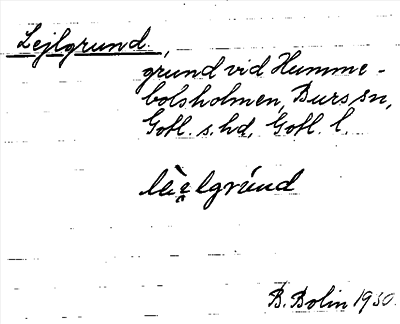 Lejlgrund,
grund vid Humme-
bolsholmen, Burs sn,
Gotl. s. hd, Gotl. l.
lèi̯lgrúnd
B. Bolin 1930.